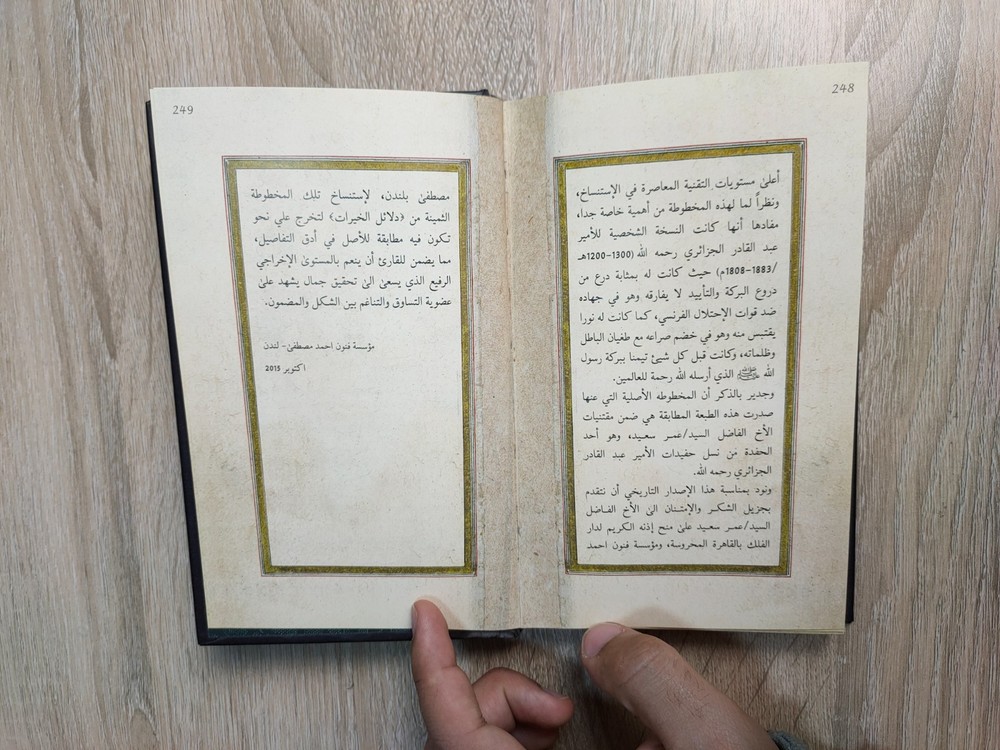 248
أعلىٰ مستويات التقنية المعاصرة في الإستنساخ،
ونظراً لما لهذه المخطوطة من أهمية خاصة جدا،
مفادها أنها كانت النسخة الشخصية للأمير
عبد القادر الجزائري رحمه الله (1300-1200هـ
/1883-1808م) حيث كانت له بمثابة درع من
دروع البركة والتأييد لا يفارقه وهو في جهاده
ضد قوات الإحتلال الفرنسي، كما كانت له نورا
يقتبس منه وهو في خضم صراعه مع طغيان الباطل
وظلماته، وكانت قبل كل شيئ تيمنا ببركة رسول
الله ﷺ الذي أرسله الله رحمة للعالمين.
وجدير بالذكر أن المخطوطه الأصلية التي عنها
صدرت هذه الطبعة المطابقة هي ضمن مقتنيات
الأخ الفاضل السيد/عمر سعيد، وهو أحد
الحفدة من نسل حفيدات الأمير عبد القادر
الجزائري رحمه الله.
ونود بمناسبة هذا الإصدار التاريخي أن نتقدم
بجزيل الشكر والإمتنان الىٰ الأخ الفاضل
السيد/عمر سعيد علىٰ منح إذنه الكريم لدار
الفلك بالقاهرة المحروسة، ومؤسسة فنون احمد
249
مصطفىٰ بلندن، لإستنساخ تلك المخطوطة
الثمينة من ﴿دلائل الخيرات﴾ لتخرج علي نحو
تكون فيه مطابقة للأصل في أدق التفاصيل،
مما يضمن للقارئ أن ينعم بالمستوىٰ الإخراجي
الرفيع الذي يسعىٰ الىٰ تحقيق جمال يشهد علىٰ
عضوية التساوق والتناغم بين الشكل والمضمون.
مؤسسة فنون احمد مصطفىٰ- لندن
اكتوبر 2015